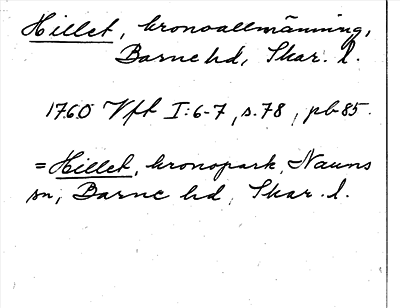 Hillet, kronoallmänning,
Barne hd, Skar. l.
1760 Vft I:6-7, s.78, pb 85.
= Hillet, kronopark, Naums
sn, Barne hd, Skar. l.